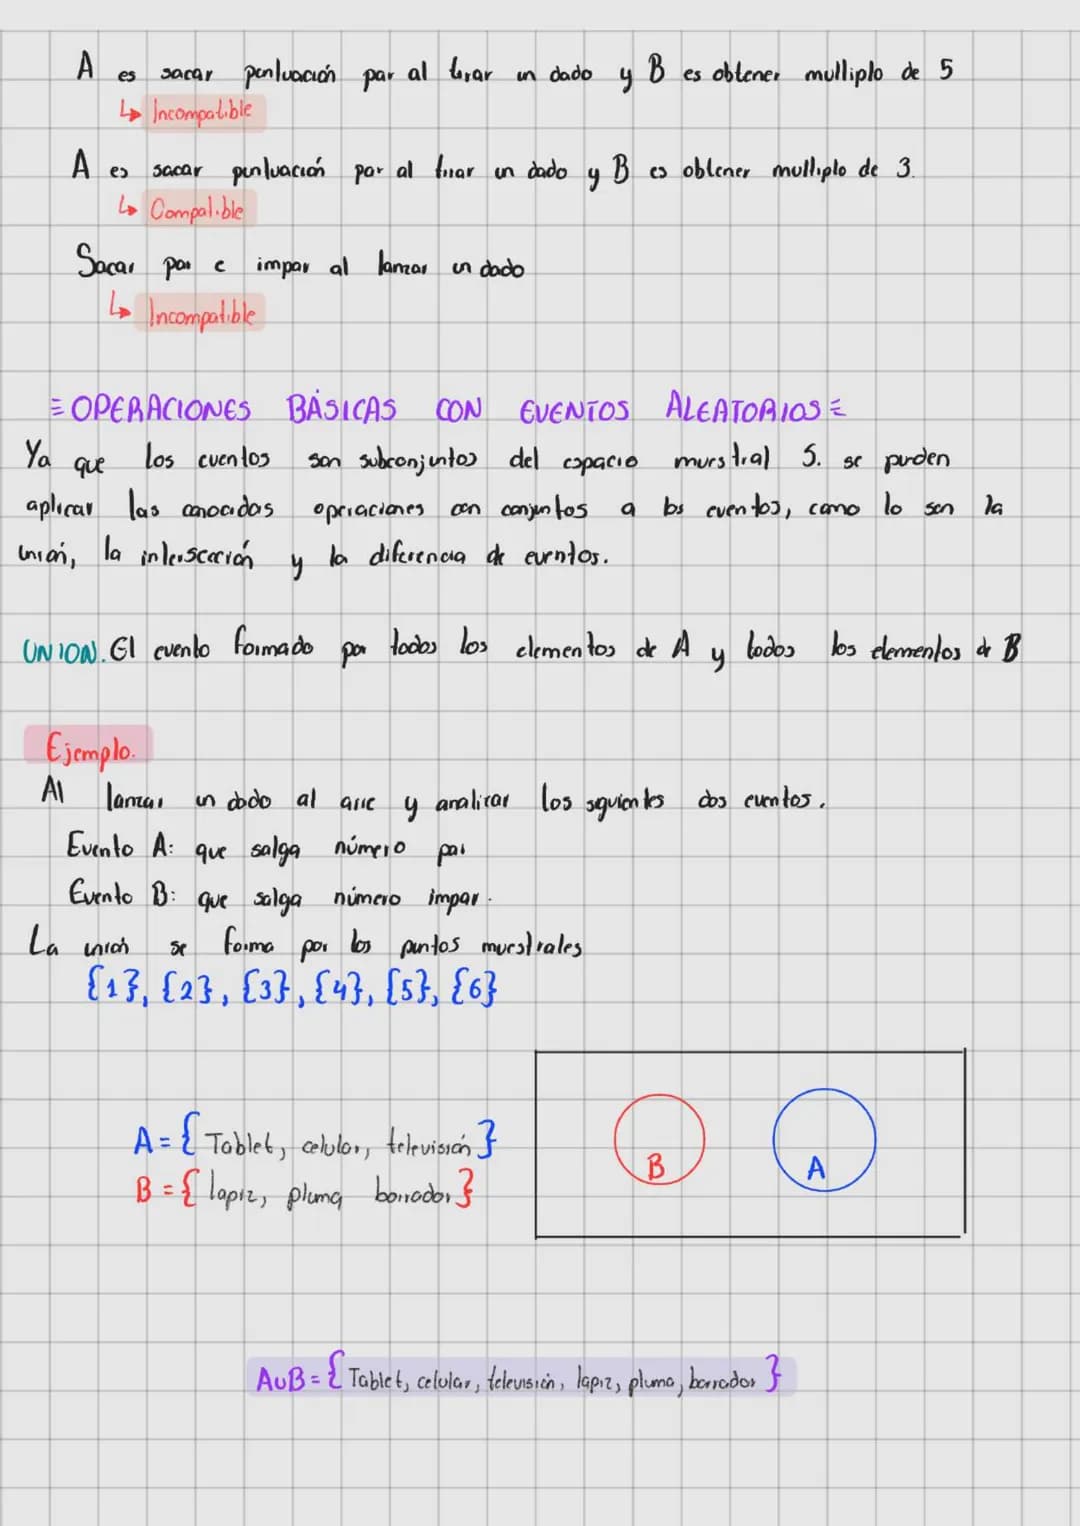 A es sacar puntuación par al tirar un dado y B es obtener multiplo de 5
↳ Incompatible
A es sacar puntuación par al tirar un dado y B es obtener multiplo de 3.
↳ Compatible
Sacar par e impar al lanzar un dado
↳ Incompatible
OPERACIONES BÁSICAS CON EVENTOS ALEATORIOS
Ya que los eventos son subconjuntos del espacio muestral S. se pueden
aplicar las conocidas operaciones con conjuntos a los eventos, como lo son la
unión, la intersección y la diferencia de eventos.
UNION. El evento formado por todos los elementos de A y todos los elementos de B
Ejemplo.
Al lanzar un dado al aire y analizar los siguientes dos eventos.
Evento A: que salga número par
Evento B: que salga número impar.
La unión se forma por los puntos muestrales
{1}, {2}, {3}, {4}, {5}, {6}
A = { Tablet, celular, televisión }
B = { lapiz, pluma borrador }
B A
A∪B = { Tablet, celular, televisión, lapiz, pluma, borrador }